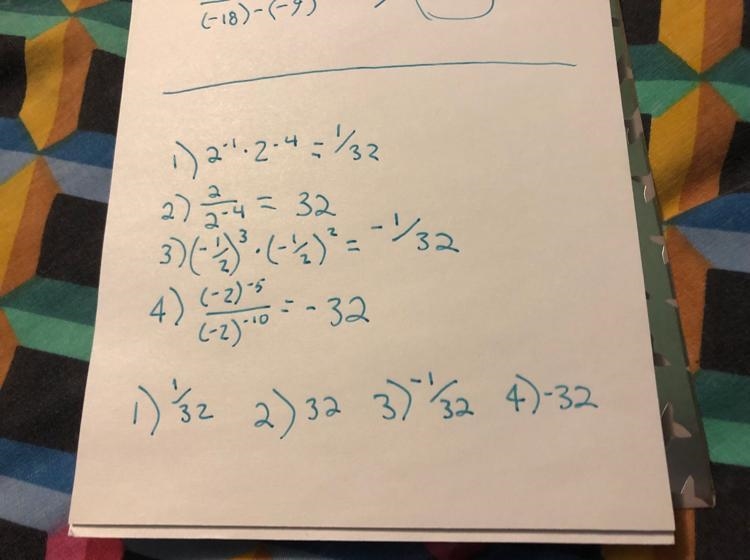 (-18)-(-9)
1) 2⁻¹·2⁻⁴ = 1/32
2) 2/2⁻⁴ = 32
3) (-1/2)³·(-1/2)² = -1/32
4) (-2)⁻⁵/(-2)⁻¹⁰ = -32
1) 1/32 2) 32 3) -1/32 4) -32